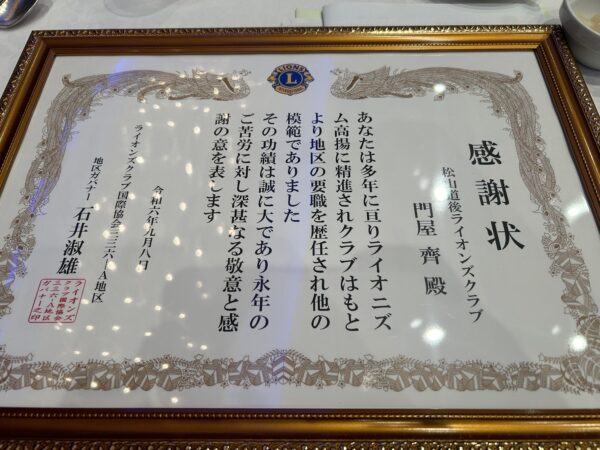 LIONS
L
感謝状
松山道後ライオンズクラブ
門屋 齊 殿
あなたは多年に亘りライオニズ
ム高揚に精進されクラブはもと
より地区の要職を歴任され他の
模範でありました
その功績は誠に大であり永年の
ご苦労に対し深甚なる敬意と感
謝の意を表します
令和六年九月八日
ライオンズクラブ国際協会三三六-A地区
地区ガバナー 石井淑雄
ライオンズ
クラブ国際協会
三三六-A地区
ガバナー之印